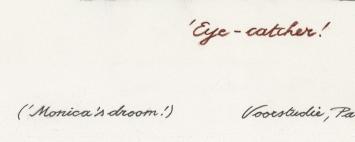 'Eye-catcher!
('Monica's droom!') Voorstudie, Pa